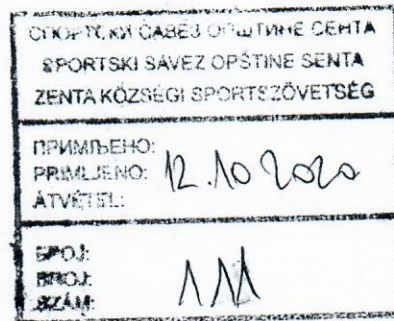 СПОРТСКИ САВЕЗ ОПШТИНЕ СЕНТА
SPORTSKI SAVEZ OPŠTINE SENTA
ZENTA KÖZSÉGI SPORTSZÖVETSÉG
ПРИМЉЕНО:
PRIMLJENO: 12.10 2020
ÁTVÉTEL:
БРОЈ:
BROJ: 111
SZÁM: